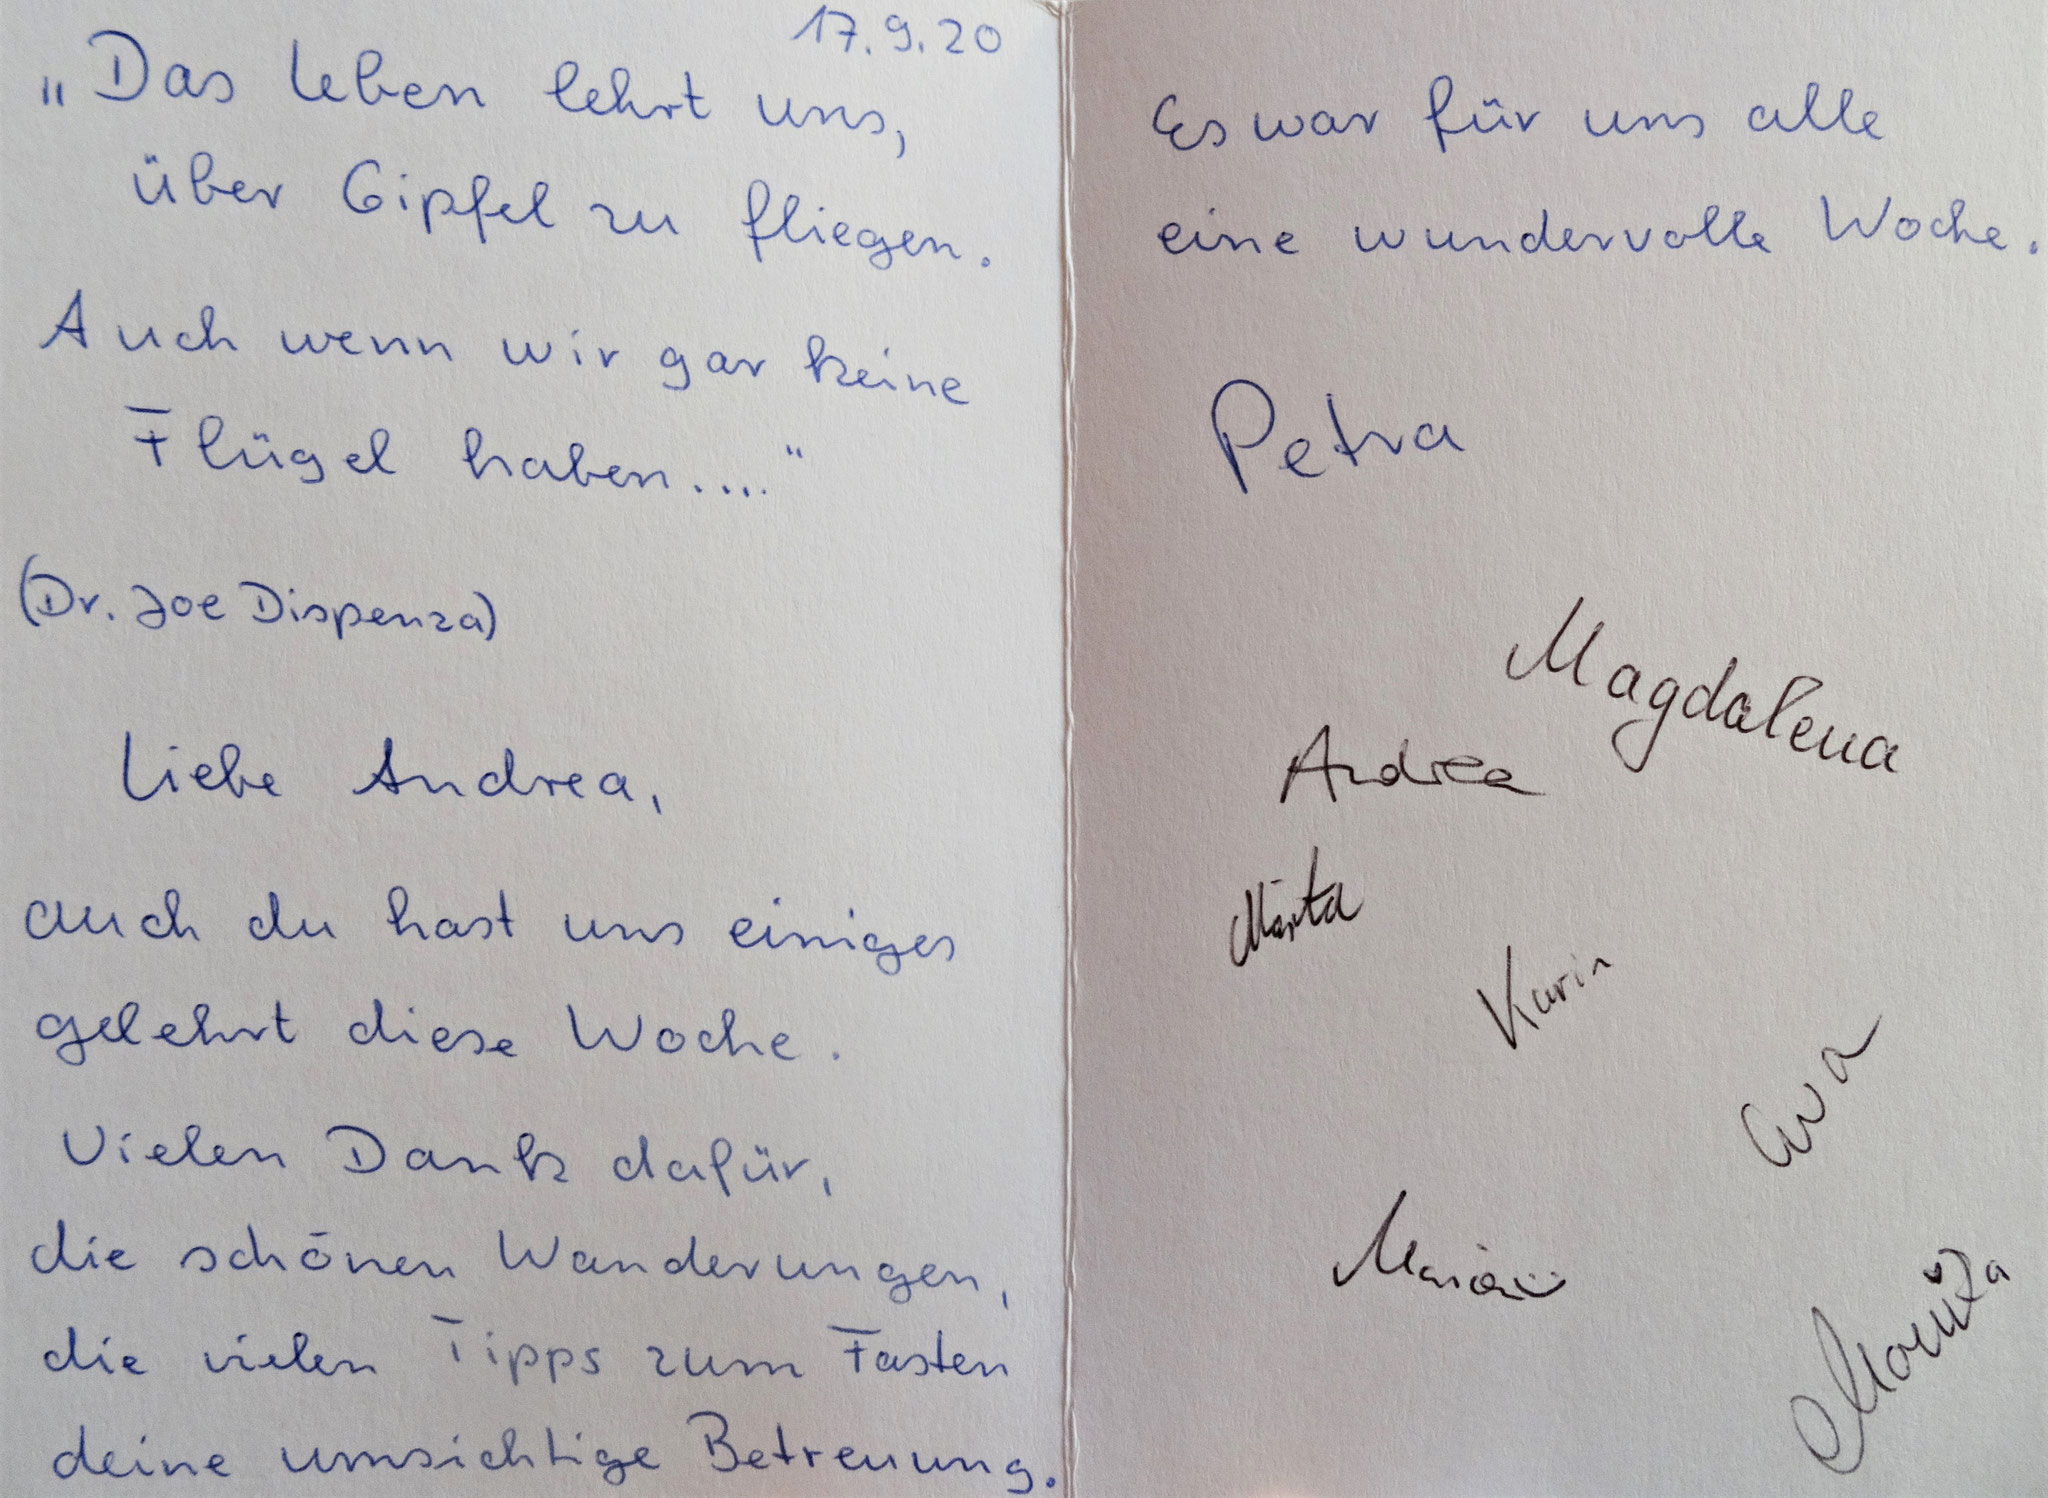 17.9.20
„Das Leben lehrt uns,
über Gipfel zu fliegen.
Auch wenn wir gar keine
Flügel haben...."
(Dr. Joe Dispenza)
Liebe Andrea,
auch du hast uns einiges
gelehrt diese Woche.
Vielen Dank dafür,
die schönen Wanderungen,
die vielen Tipps zum Fasten
deine umsichtige Betreuung.
Es war für uns alle
eine wundervolle Woche.
Petra
Magdalena
Andrea
Marita
Karin
Eva